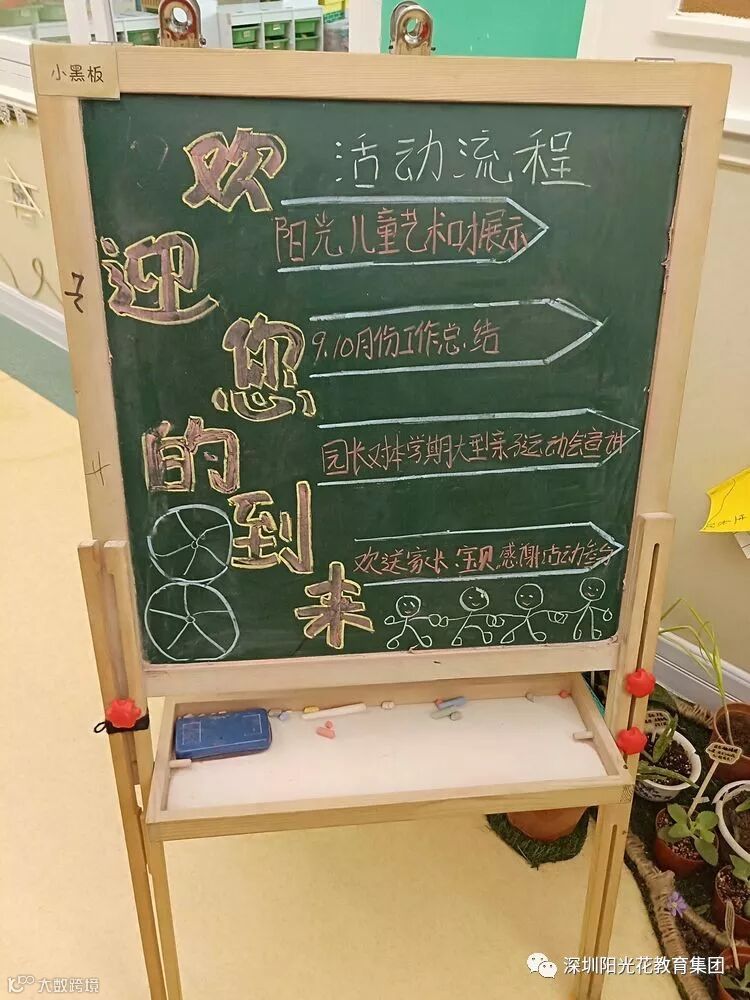 小黑板
欢迎您的到来
活动流程
阳光儿童艺术口才展示
9.10月份工作总结
园长对本学期大型亲子运动会宣讲
欢送家长.宝贝.感谢活动参与
深圳阳光花教育集团
大数跨境